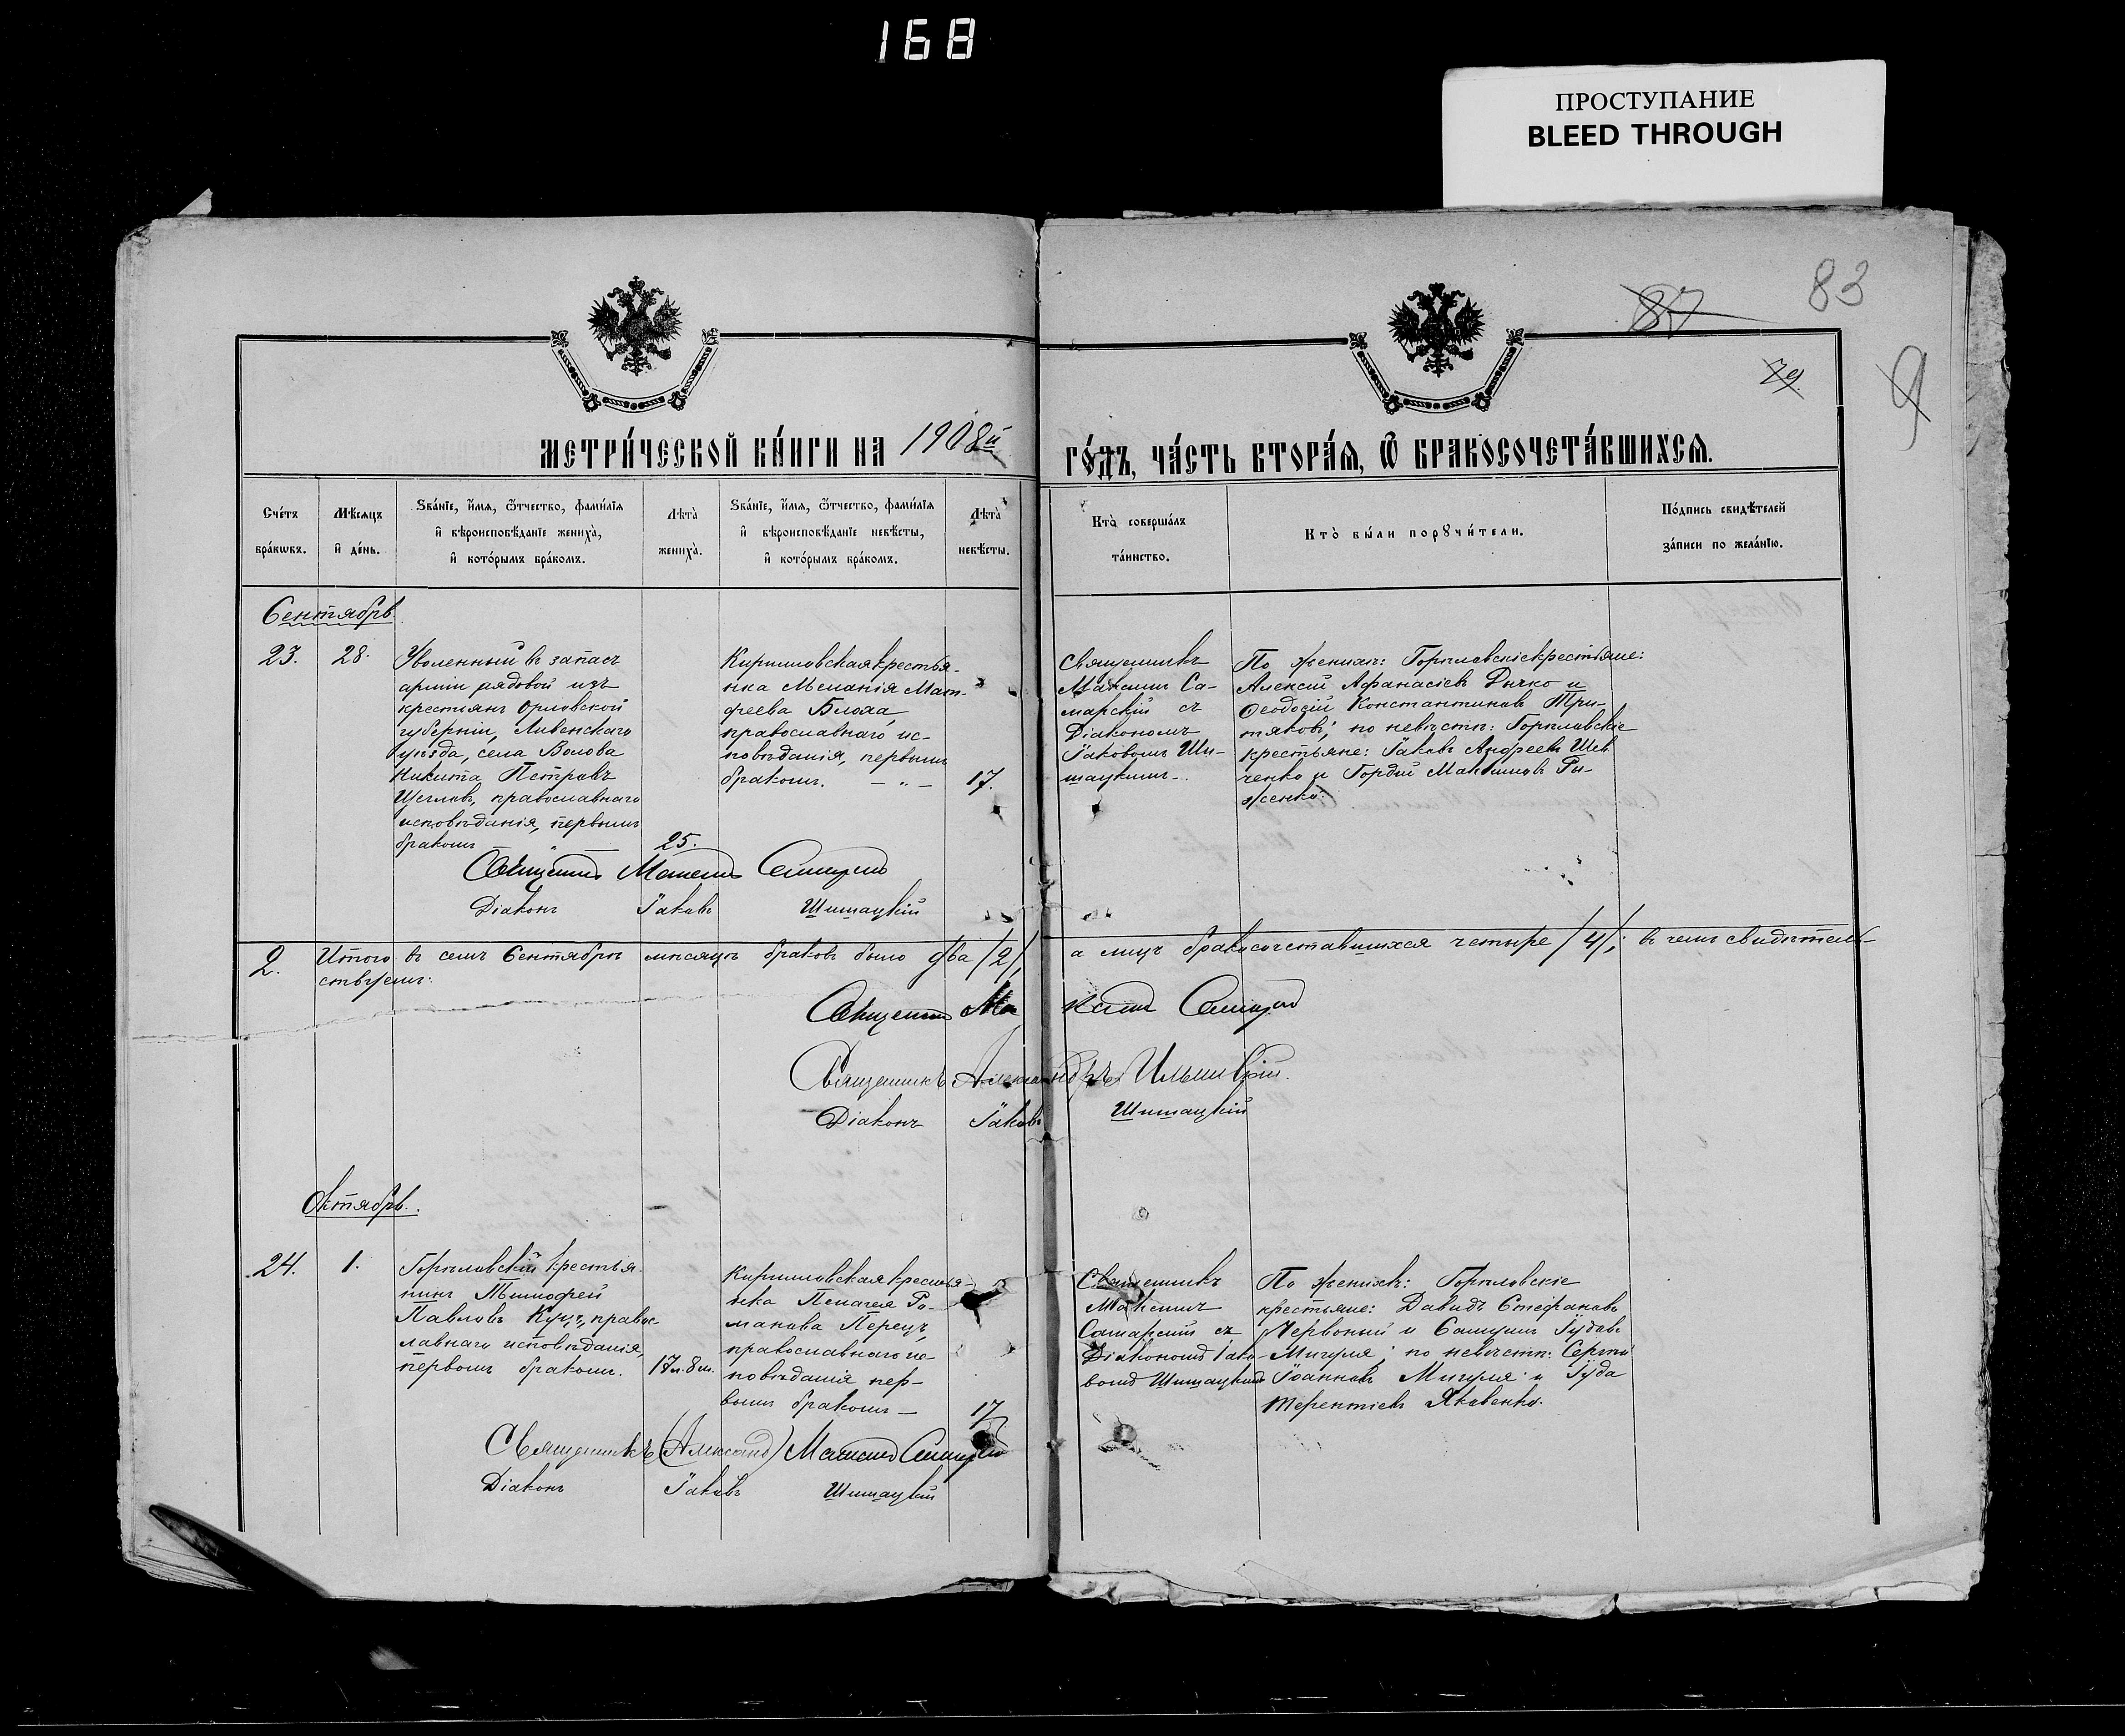 168
ПРОСТУПАНИЕ
BLEED THROUGH
87
83
79
МЕТРИ́ЧЕСКОЙ КНИ́ГИ НА 1908й
ГО́ДЪ, ЧА́СТЬ ВТОРА́Я, Ѡ БРАКОСОЧЕТА́ВШИХСЯ.
Сче́тъ бра́кѡвъ.
Мѣ́сяцъ и де́нь.
Зва́нїе, и́мя, ѻ́тчество, фами́лїя и вѣроисповѣ́данїе жениха̀, и кото́рымъ бра́комъ.
Лѣта̀ жениха̀.
Зва́нїе, и́мя, ѻ́тчество, фами́лїя и вѣроисповѣ́данїе невѣ́сты, и кото́рымъ бра́комъ.
Лѣта̀ невѣ́сты.
Кто̀ соверша́лъ та́инство.
Кто̀ бы́ли порꙋчи́тели.
По́дпись свидѣ́телей за́писи по жела́нїю.
Сентябрь.
23.
28.
Уволенный въ запасъ
арміи рядовой изъ
крестьянъ Орловской
губерніи, Ливенскаго
уѣзда, села Волова
Никита Петровъ
Щегловъ, православнаго
исповѣданія, первымъ
бракомъ
25.
Кирилловская крестья-
нка Меланія Мат-
феева Блоха,
православнаго ис-
повѣданія, первымъ
бракомъ. — „ —
17.
Священникъ
Максимъ Са-
марскій съ
Діакономъ
Іаковомъ Ши-
шацкимъ.
По женихѣ: Горѣловскіе крестьяне:
Алексій Афанасіевъ Дычко и
Ѳеодосій Константиновъ Три-
тяковъ; по невѣстѣ: Горѣловскіе
крестьяне: Іаковъ Андреевъ Шев
ченко и Гордій Максимовъ Ры-
женко.
Священникъ Максимъ Самарскій
Діаконъ Іаковъ Шишацкій
2.
Итого въ семъ Сентябрѣ мѣсяцѣ браковъ было два /2/, а лицъ бракосочетавшихся четыре /4/; въ чемъ свидѣтель-
ствуемъ:
Священникъ Максимъ Самарскій
Священникъ Александръ
Діаконъ Іаковъ Шишацкій
Октябрь.
24.
1.
Горѣловскій крестья-
нинъ Тимофей
Павловъ Куцъ, правос-
лавнаго исповѣданія,
первымъ бракомъ.
17 л. 8 м.
Кирилловская крестья-
нка Пелагея Ро-
манова Перецъ,
православнаго ис-
повѣданія пер-
вымъ бракомъ —
17
Священникъ
Максимъ
Самарскій съ
Діакономъ Іако-
вомъ Шишацкимъ
По женихѣ: Горѣловскіе
крестьяне: Давидъ Стефановъ
Червоный и Самуилъ Іудовъ
Мигуля; по невѣстѣ: Сергій
Іоанновъ Мигуля и Іуда
Терентіевъ Яковенко.
Священникъ (Александ) Максимъ Самарскій
Діаконъ Іаковъ Шишацкій